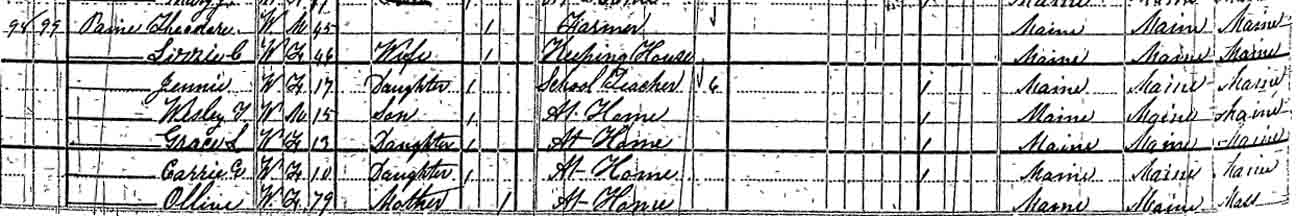 Mary J. W F At Home Maine Maine Maine
94 99 Paine Theodore W M 45 1 Farmer Maine Maine Maine
Lizzie C W F 46 Wife 1 Keeping House Maine Maine Maine
Jennie W F 17 Daughter 1 School Teacher 6 1 Maine Maine Maine
Wesley W M 15 Son 1 At Home 1 Maine Maine Maine
Grace L W F 13 Daughter 1 At Home 1 Maine Maine Maine
Carrie E W F 10 Daughter 1 At Home 1 Maine Maine Maine
Ollive W F 79 Mother 1 At Home Maine Maine Mass